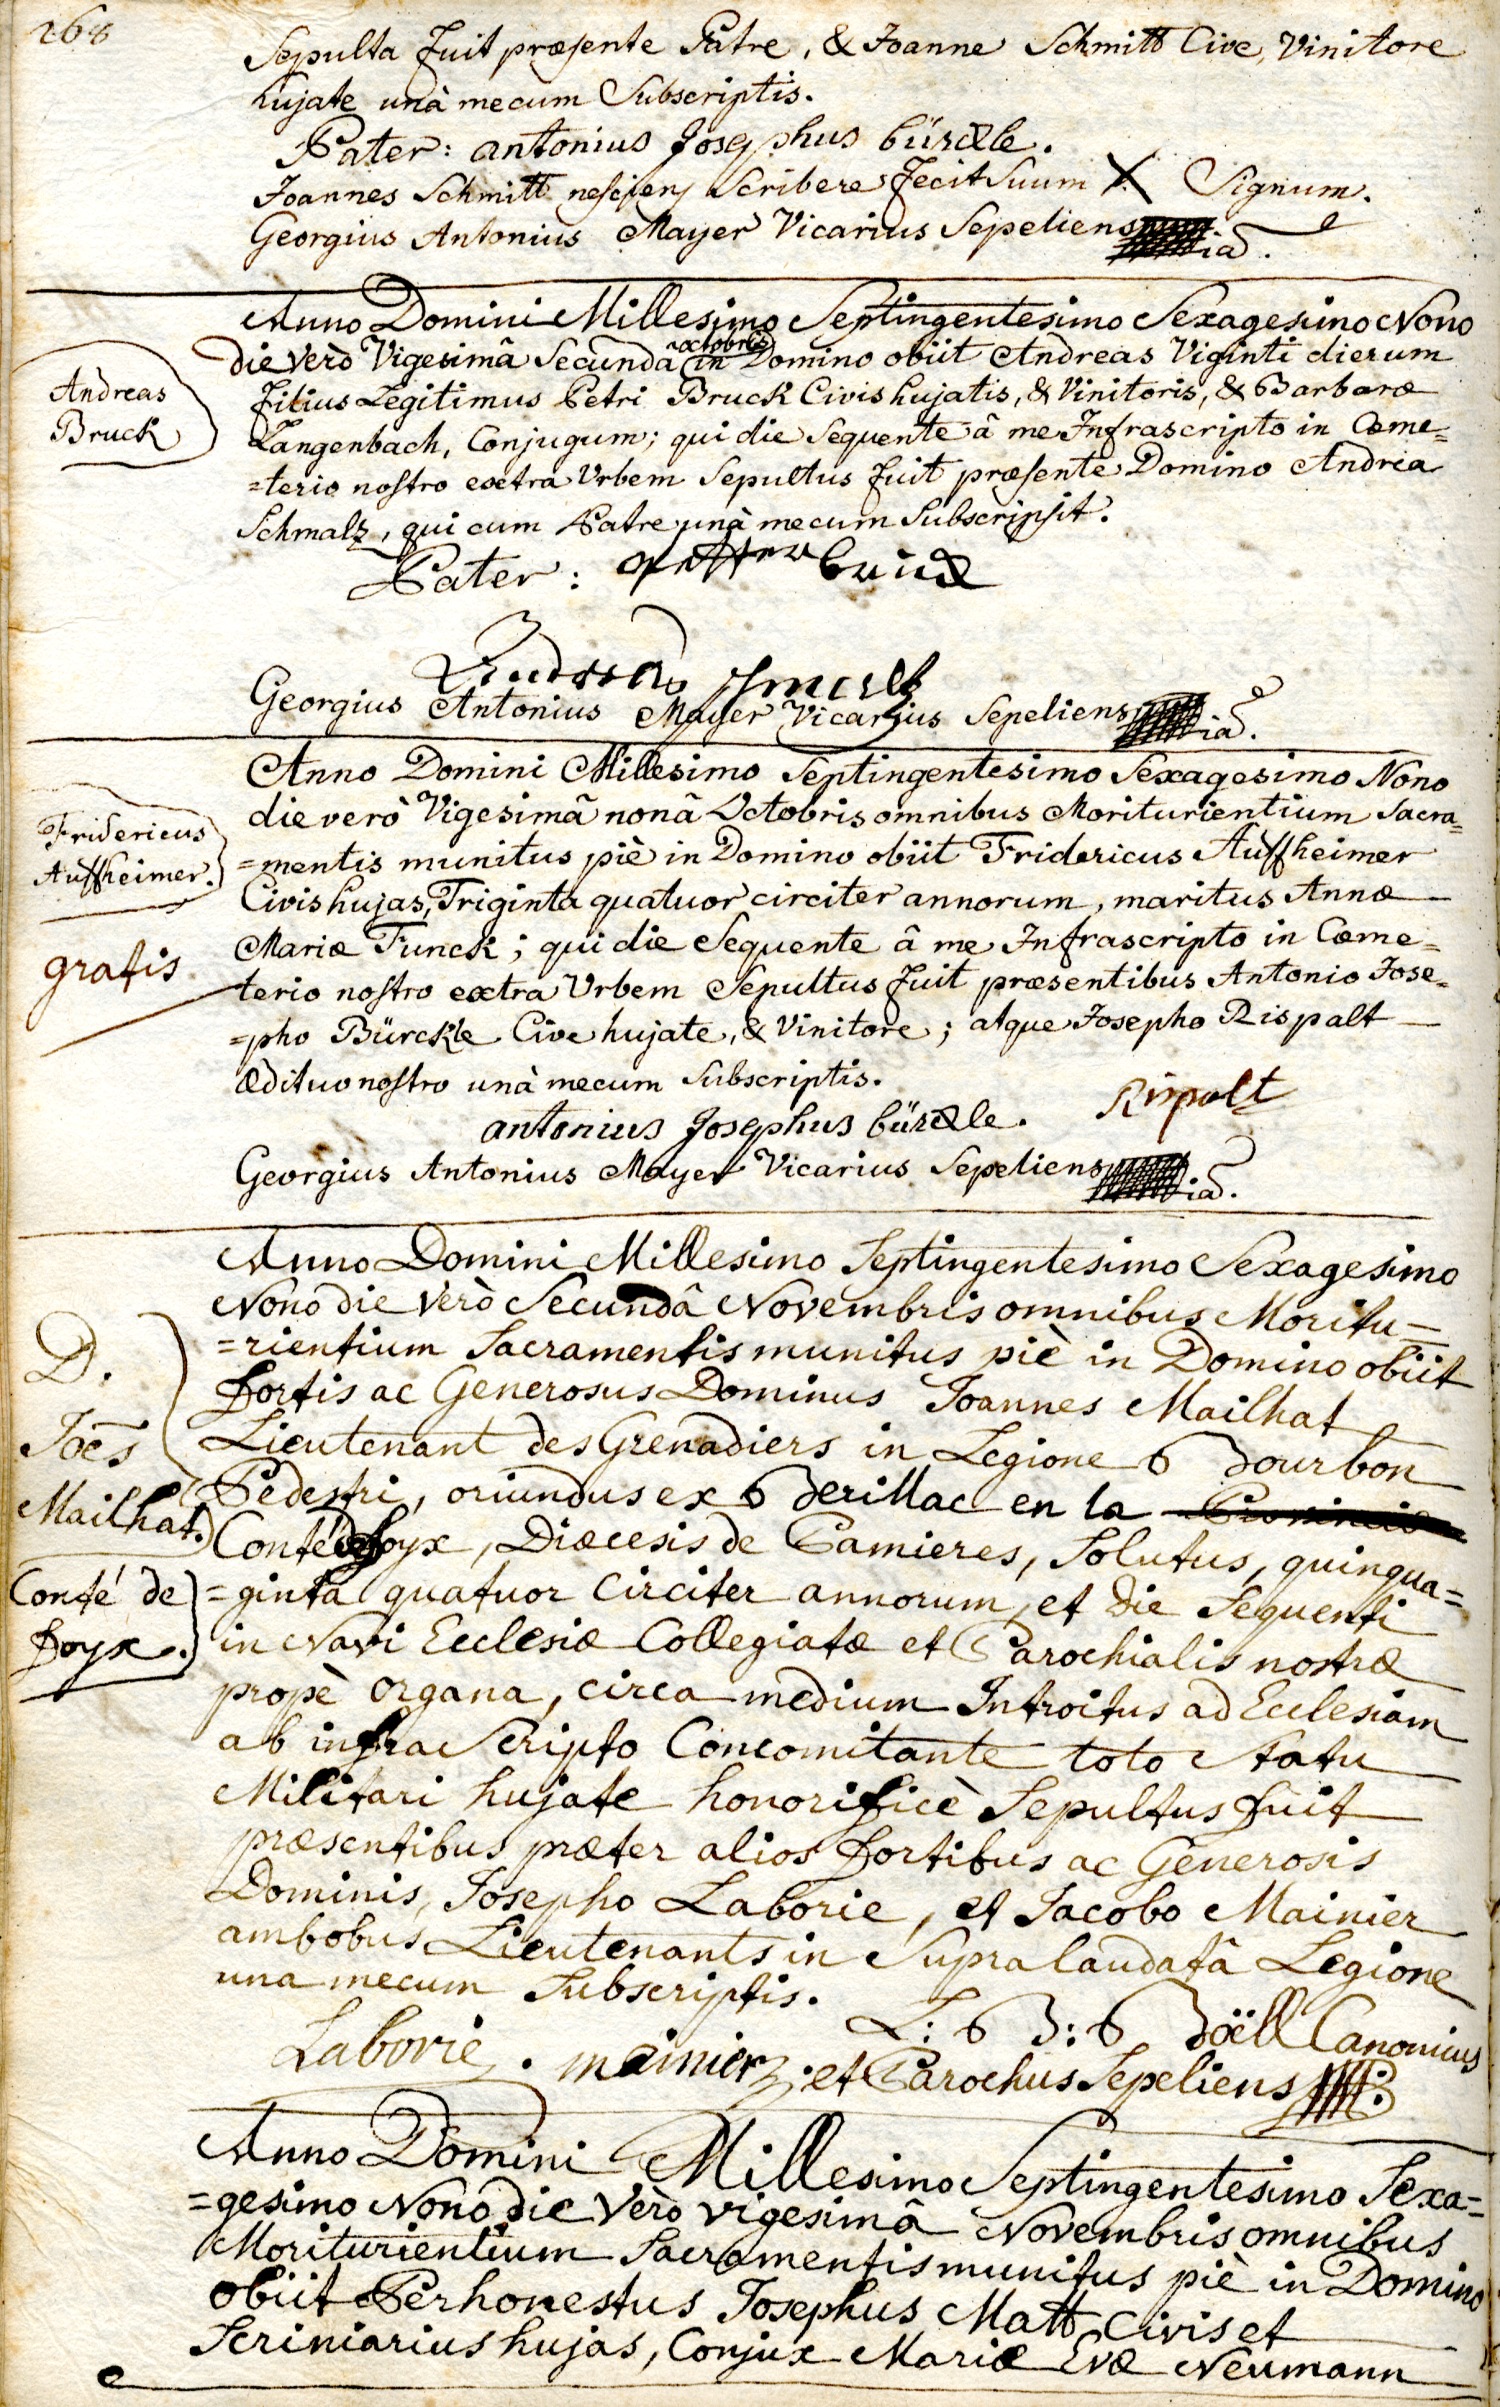 268
Sepulta fuit præsente Patre, & Joanne Schmitt Cive, Vinitore
hujate unà mecum Subscriptis.
Pater: antonius Josephus bürckle.
Joannes Schmitt nesciens Scribere fecit Suum X Signum.
Georgius Antonius Mayer Vicarius Sepeliens
Anno Domini Millesimo Septingentesimo Sexagesimo Nono
die verò Vigesimâ Secundâ octobris in Domino obiit Andreas Viginti dierum
Andreas
Bruck
filius Legitimus Petri Bruck Civis hujatis, & Vinitoris, & Barbaræ
Langenbach, Conjugum; qui die Sequente â me Infrascripto in Cœme=
=terio nostro extra Urbem Sepultus fuit præsente Domino Andrea
Schmalz, qui cum Patre unà mecum Subscripsit.
Pater: petter bruck
Andreas Schmalz
Georgius Antonius Mayer Vicarius Sepeliens
Anno Domini Millesimo Septingentesimo Sexagesimo Nono
die verò Vigesimâ nonâ Octobris omnibus Moriturientium Sacra=
Fridericus
Auffheimer.
gratis
=mentis munitus piè in Domino obiit Fridericus Auffheimer
Civis hujas, Triginta quatuor circiter annorum, maritus Annæ
Mariæ Funck; qui die Sequente â me Infrascripto in Cœme=
terio nostro extra Urbem Sepultus fuit præsentibus Antonio Jose=
=pho Bürckle Cive hujate, & Vinitore; atque Josepho Rispalt
ædituo nostro unà mecum Subscriptis.
antonius Josephus bürckle. Rispalt
Georgius Antonius Mayer Vicarius Sepeliens
Anno Domini Millesimo Septingentesimo Sexagesimo
Nono die verò Secundâ Novembris omnibus Moritu=
=rientium Sacramentis munitus piè in Domino obiit
D.
Joes
Mailhat.
Conté de
foyx.
fortis ac Generosus Dominus Joannes Mailhat
Lieutenant des Grenadiers in Legione Bourbon
Pedestri, oriundus ex Berillac en la
Conté de foyx, Diæcesis de Pamieres, Solutus, quinqua=
=ginta quatuor circiter annorum, et die Sequenti
in Navi Ecclesiæ Collegiatæ et Parochialis nostræ
propè organa, circa medium Introitus ad Ecclesiam
ab infra Scripto Concomitante toto Statu
Militari hujate honorificè Sepultus fuit
præsentibus præter alios fortibus ac Generosis
Dominis, Josepho Laborie, et Jacobo Mainier
ambobus Lieutenants in Supralaudatâ Legione
una mecum Subscriptis.
Laborie. mainier L: B: Böell Canonicus
et Parochus Sepeliens
Anno Domini Millesimo Septingentesimo Sexa=
=gesimo Nono die Verò vigesimâ Novembris omnibus
Moriturientium Sacramentis munitus piè in Domino
obiit Perhonestus Josephus Matt Civis et
Scriniarius hujas, Conjux Mariæ Evæ Neumann